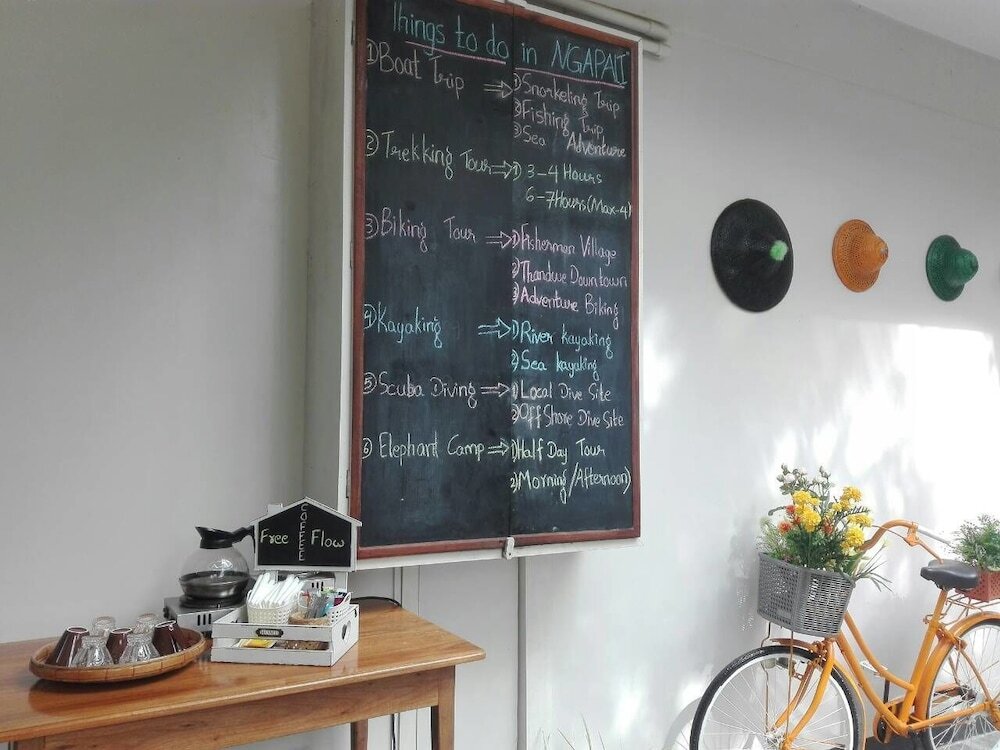 Things to do in NGAPALI
① Boat Trip ⇒ ① Snorkeling Trip
② Fishing Trip
③ Sea Adventure
② Trekking Tour ⇒ ① 3-4 Hours
6-7Hours(Max-4)
③ Biking Tour ⇒ ① Fisherman Village
② Thandwe Downtown
③ Adventure Biking
④ Kayaking ⇒ ① River kayaking
② Sea kayaking
⑤ Scuba Diving ⇒ ① Local Dive Site
② Off Shore Dive Site
⑥ Elephant Camp ⇒ ① Half Day Tour
2) Morning/Afternoon)
COFFEE
Free Flow